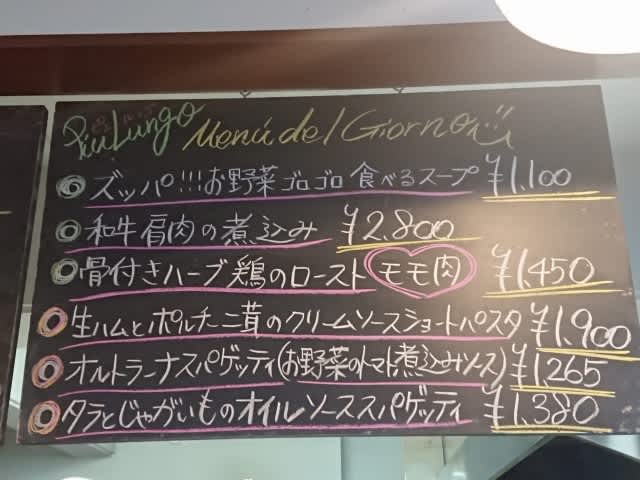 Più Lungo Menú del Giorno!!
ズッパ!!!お野菜ゴロゴロ 食べるスープ ¥1,100
和牛肩肉の煮込み ¥2,800
骨付きハーブ鶏のロースト モモ肉 ¥1,450
生ハムとポルチーニ茸のクリームソースショートパスタ ¥1,900
オルトラーナスパゲッティ(お野菜のトマト煮込みソース) ¥1,265
タラとじゃがいものオイルソーススパゲッティ ¥1,380